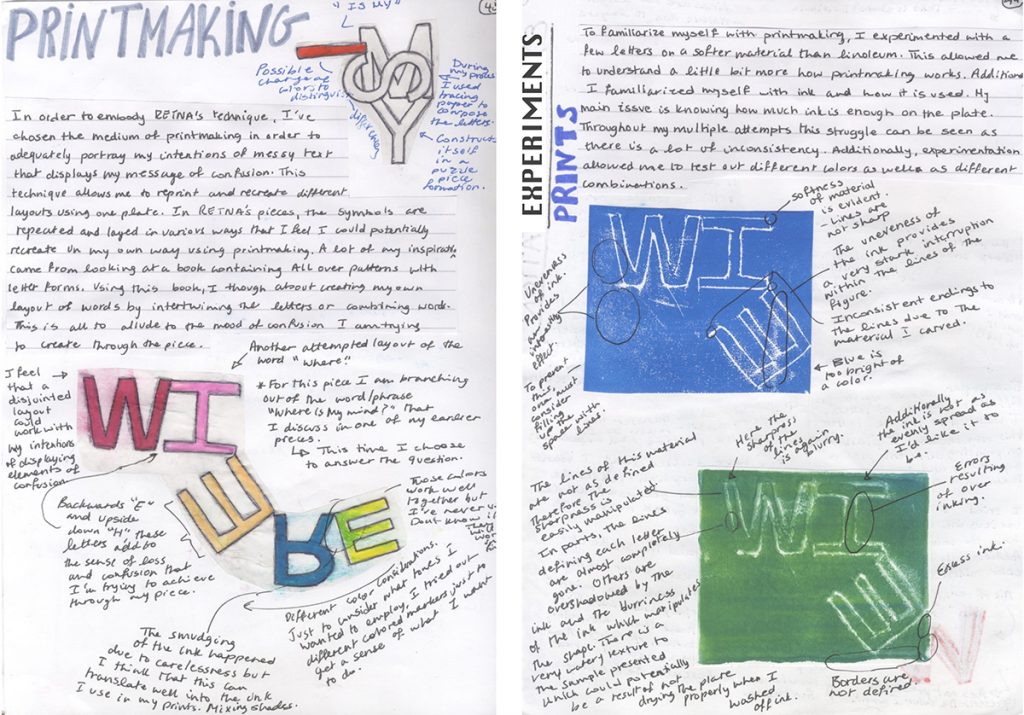 PRINTMAKING
"IS MY"
43
Possible
change of
color to
distinguish
difference
During
my process
I used
tracing
paper to
compose
the letters.
Constructs
itself in
a puzzle
piece
formation.
In order to embody RETNA's technique, I've
chosen the medium of printmaking in order to
adequately portray my intentions of messy text
that displays my message of confusion. This
technique allows me to reprint and recreate different
layouts using one plate. In RETNA's pieces, the symbols are
repeated and layed in various ways that I feel I could potentially
recreate in my own way using printmaking. A lot of my inspiration
came from looking at a book containing All over patterns with
letter forms. Using this book, I though about creating my own
layout of words by intertwining the letters or combining words.
This is all to allude to the mood of confusion I am trying
to create through the piece.
Another attempted layout of the
word "Where."
I feel
that a
disjointed
layout
could
work with
my intentions
of displaying
elements of
confusion
WI
E
RE
* For this piece I am branching
out of the word/phrase
"Where is My mind?" that
I discuss in one of my earlier
pieces.
This time I choose
to answer the question.
Backwards "E"
and upside
down "H" these
letters add to
the sense of loss
and confusion that
I'm trying to achieve
through my piece.
Those colors
work well
together but
I've never
Dont know if
The smudging
of the ink happened
due to carelessness but
I think that this can
translate well into the ink
I use in my prints. Mixing shades.
Different color considerations.
Just to consider what tones I
wanted to employ, I tried out
different colored markers just to
get a sense
of what I want
to do.
EXPERIMENTS
PRINTS
To familiarize myself with printmaking, I experimented with a
few letters on a softer material than linoleum. This allowed me
to understand a little bit more how printmaking works.
I familiarized myself with ink and how it is used. My
main issue is knowing how much ink is enough on the plate.
Throughout my multiple attempts this struggle can be seen as
there is a lot of inconsistency. Additionally, experimentation
allowed me to test out different colors as well as different
combinations.
WI
E
Uneveness
of ink
Provides
an
interesting
effect.
To prevent
this,
one must
consider
filling
up the
space with
lines.
Softness
of material
is evident.
- Lines are
not sharp
The uneveness of
the ink provides
a very stark interruption
within the lines of the
figure.
Inconsistent endings to
the lines due to the
material I carved.
Blue is
too bright of
a color.
Here the
sharpness
of the
lines
is again
blurry.
Additionally
the ink is not as
evenly spread as
I'd like it to
be.
Errors
resulting
of over
inking.
WI
E
Excess ink.
Borders are
not defined
The lines of this material
are not as defined
Therefore the
sharpness is
easily manipulated.
In parts, the lines
defining each letter
are almost completely
gone. Others are
overshadowed by the
ink and the blurriness
of the ink which manipulates
the shape. There is a
very watery texture to
the sample presented
which could potentially
be a result of not
drying the plate
properly when I
washed
off ink.